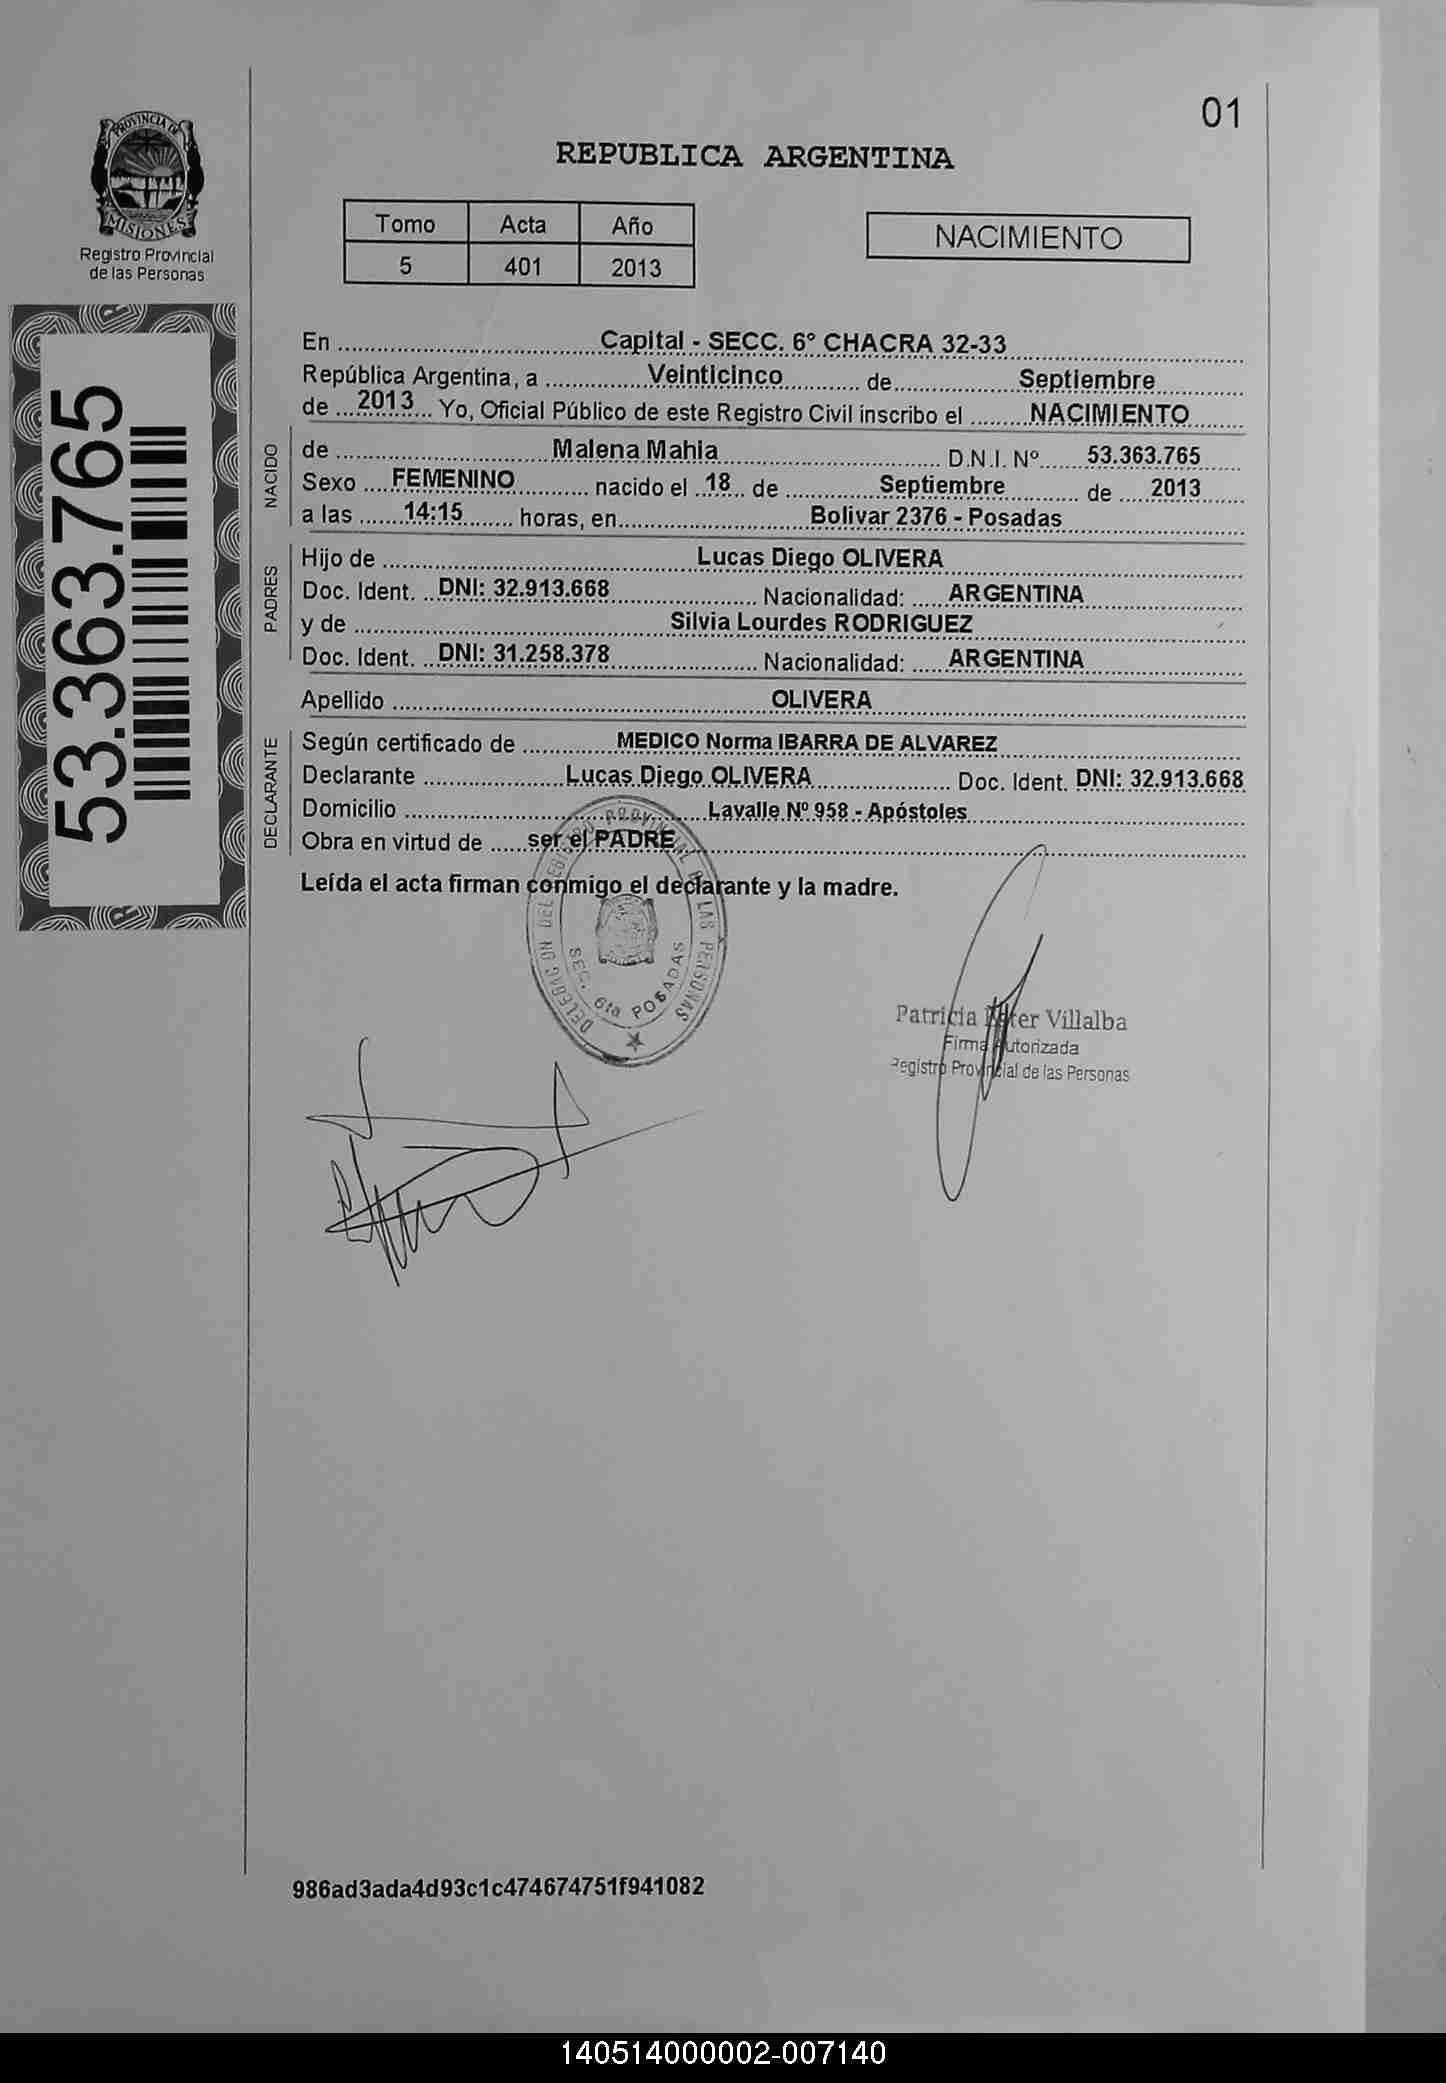 01
PROVINCIA DE
MISIONES
Registro Provincial
de las Personas
REPUBLICA ARGENTINA
Tomo Acta Año
5 401 2013
NACIMIENTO
53.363.765
En Capital - SECC. 6° CHACRA 32-33
República Argentina, a Veinticinco de Septiembre
de 2013 Yo, Oficial Público de este Registro Civil inscribo el NACIMIENTO
NACIDO
de Malena Mahia D.N.I. Nº 53.363.765
Sexo FEMENINO nacido el 18 de Septiembre de 2013
a las 14:15 horas, en Bolivar 2376 - Posadas
PADRES
Hijo de Lucas Diego OLIVERA
Doc. Ident. DNI: 32.913.668 Nacionalidad: ARGENTINA
y de Silvia Lourdes RODRIGUEZ
Doc. Ident. DNI: 31.258.378 Nacionalidad: ARGENTINA
Apellido OLIVERA
DECLARANTE
Según certificado de MEDICO Norma IBARRA DE ALVAREZ
Declarante Lucas Diego OLIVERA Doc. Ident. DNI: 32.913.668
Domicilio Lavalle Nº 958 - Apóstoles
Obra en virtud de ser el PADRE
Leída el acta firman conmigo el declarante y la madre.
DELEGACION DEL REGISTRO PROVINCIAL DE LAS PERSONAS
SEC. 6ta POSADAS
Patricia Villalba
Firma Autorizada
Registro Provincial de las Personas
986ad3ada4d93c1c474674751f941082
140514000002-007140